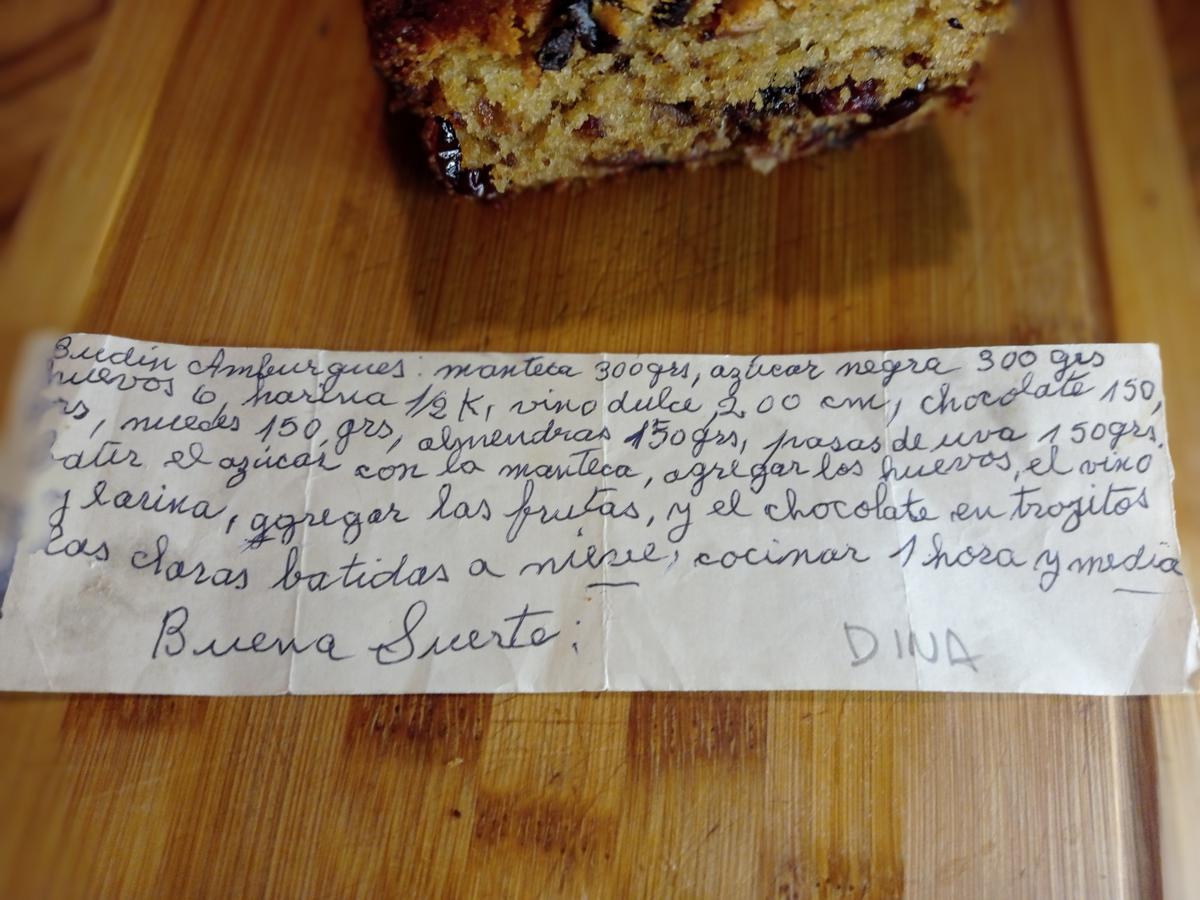 Budín Amburgues: manteca 300grs, azúcar negra 300 grs
huevos 6, harina 1/2 K, vino dulce, 2,00 cm, chocolate 150,
rs, nueces 150, grs, almendras 150grs, pasas de uva 150grs.
Batir el azúcar con la manteca, agregar los huevos, el vino
y larina, agregar las frutas, y el chocolate en trozitos
las claras batidas a nieve, cocinar 1 hora y media
Buena Suerte;
DINA